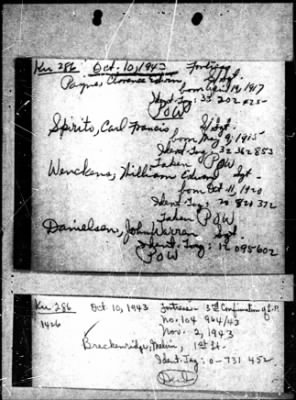 Ku 286 Oct. 10, 1943 Fortress
Payne, Clarence Edwin S/Sgt.
born April 19, 1917
Ident. Tag: 33 202 425
POW
Spirito, Carl Francis S/Sgt.
born May 9, 1915
Ident. Tag: 32 362 853
Taken POW
Wenckens, William Edward Sgt.
born Oct. 11, 1920
Ident. Tag: 20 821 372
Taken POW
Danielsen, John Warren Sgt.
Ident. Tag: 12 095602
POW
Ku 286 Oct. 10, 1943 Fortress 3rd Confirmation of
1426 No. 104 964/43
Nov. 2, 1943
Breckenridge, Melvin, 1st Lt.
Ident. Tag: 0-731 452
Dead